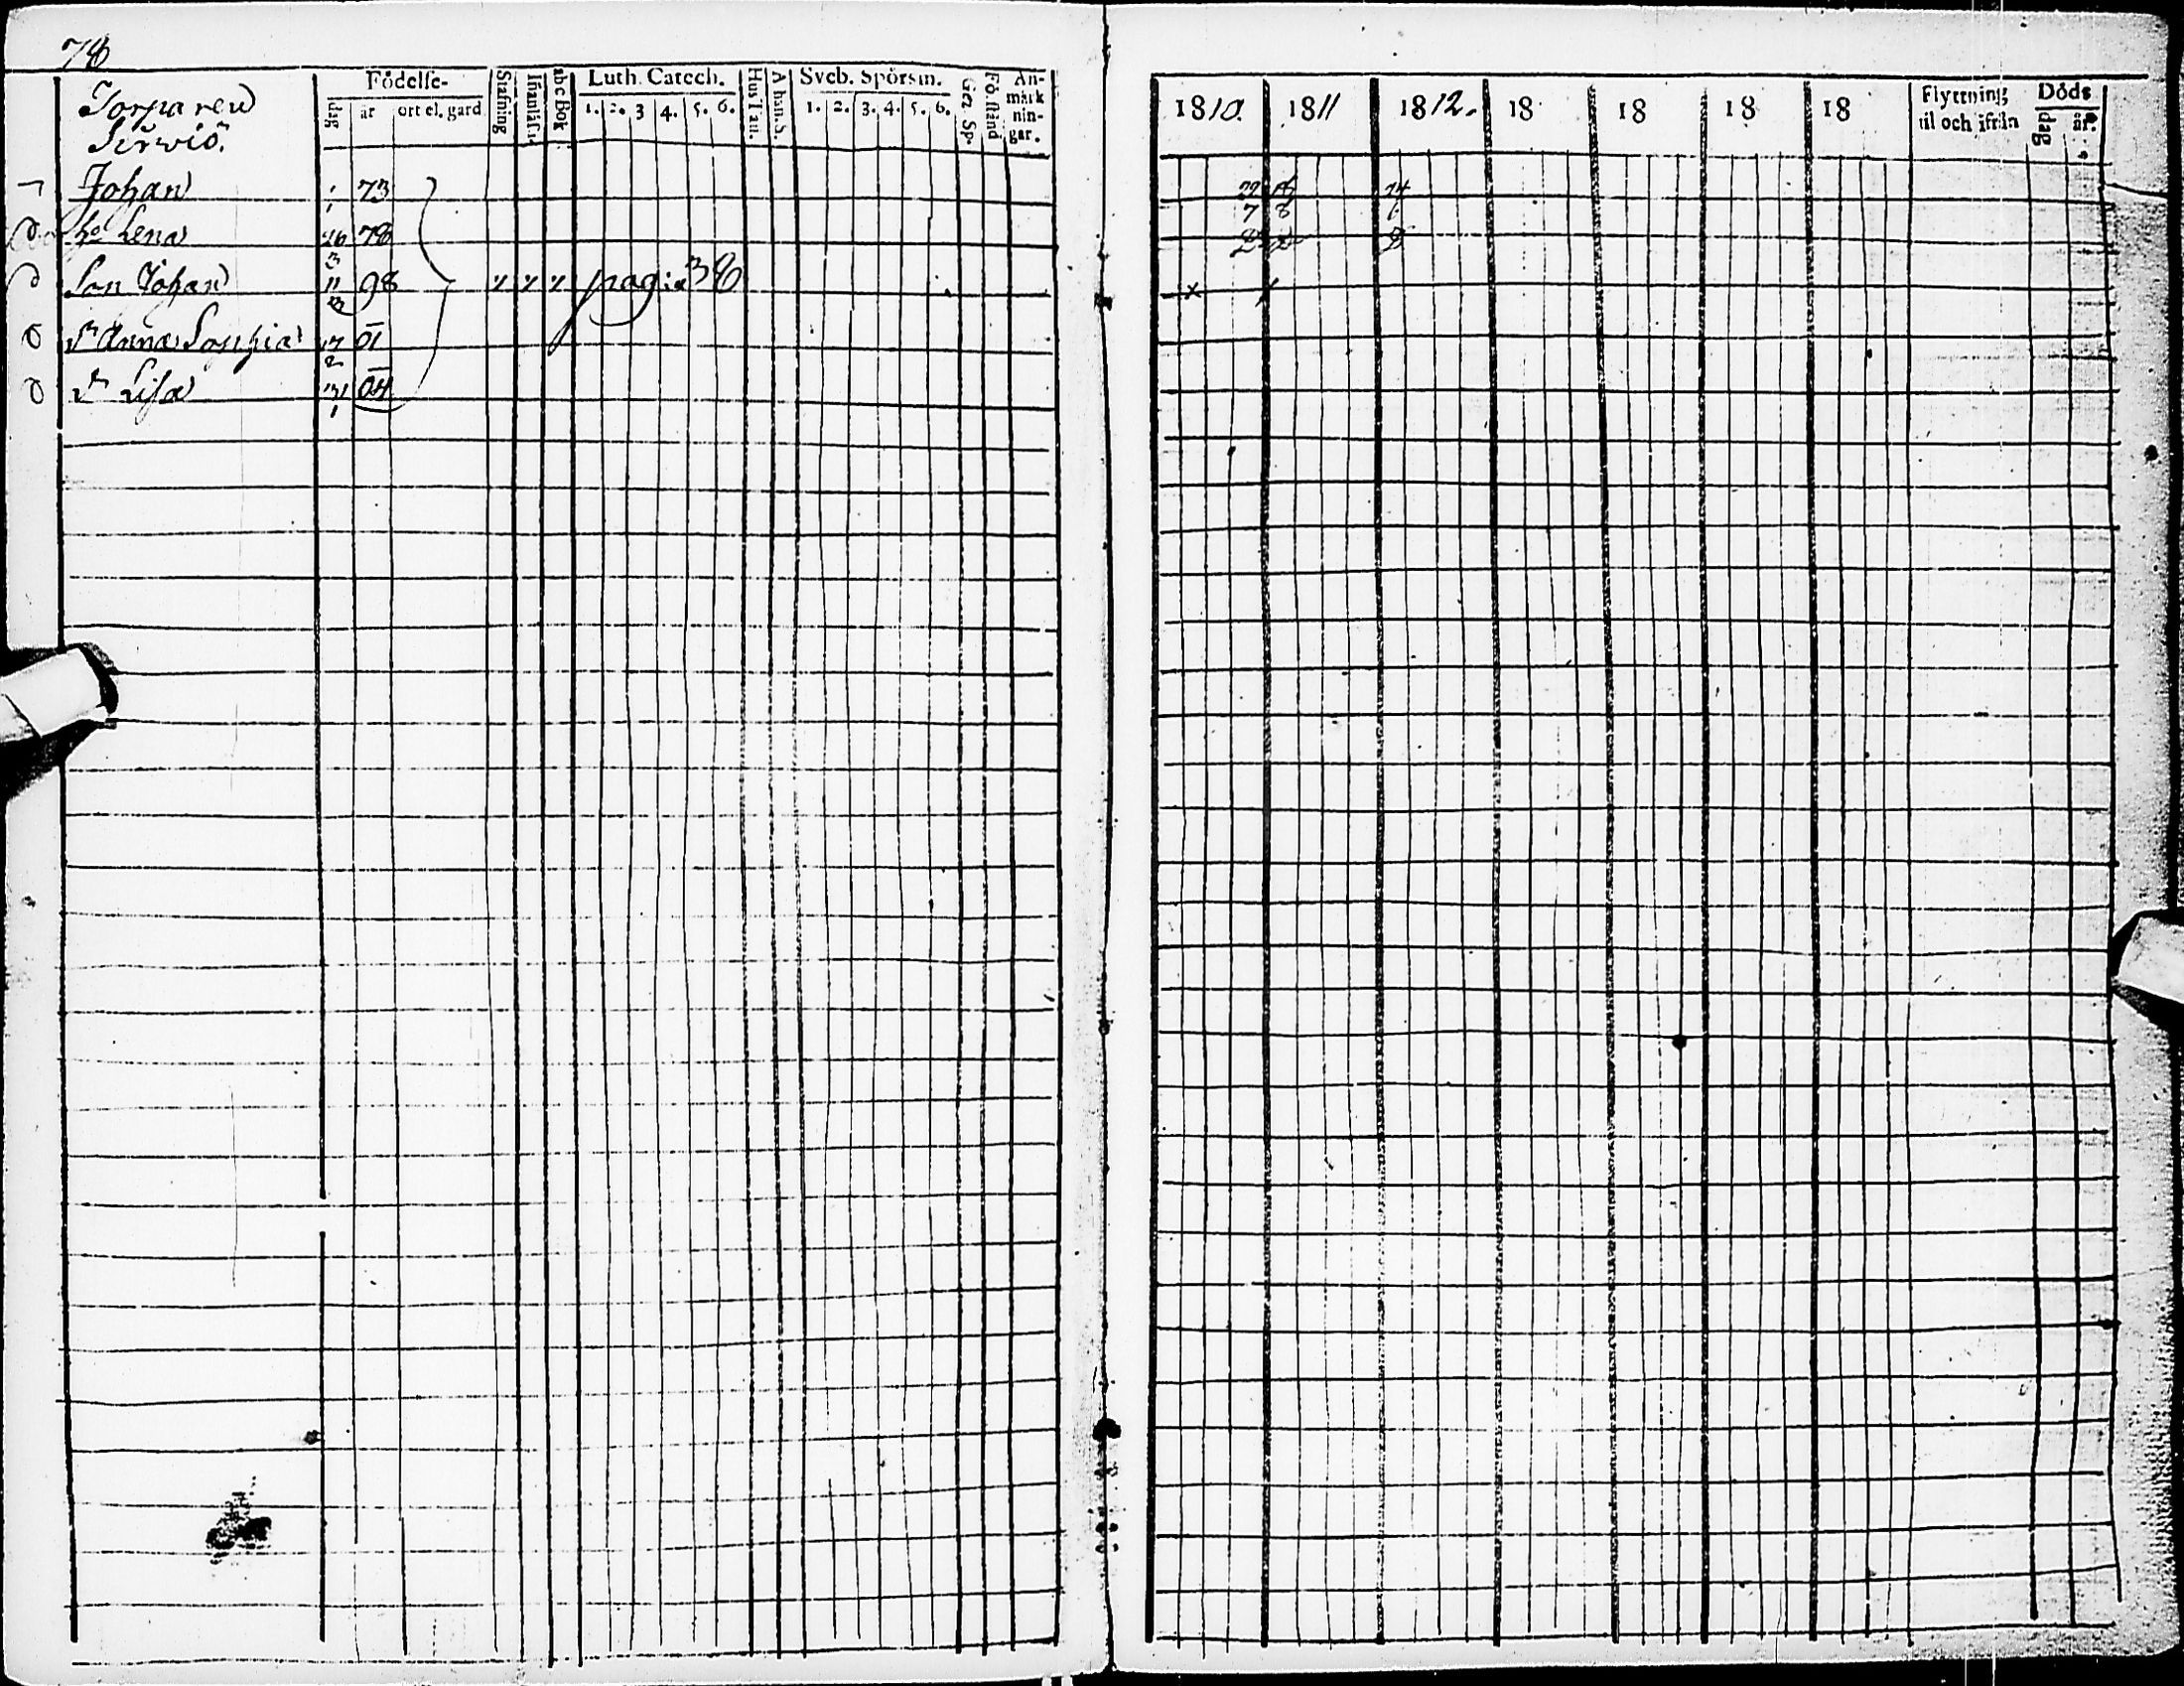 78
Torparen
Födelse-
dag år ort el. gard
Stafning
abc Bok
Luth. Catech.
1. 2. 3 4. 5. 6.
Sveb. Spörsm.
1. 2. 3. 4. 5. 6.
An-
märk
nin-
gar.
Johan 1/1 73
hu Lena 26/3 78
Son Johan 98 pag: 38
dr Anna Sophia 17/2 01
dr Lisa 31/1 04
1810. 1811 1812. 18 18 18 18
Flyttning
til och ifrån
Döds
dag år.
7 8
x